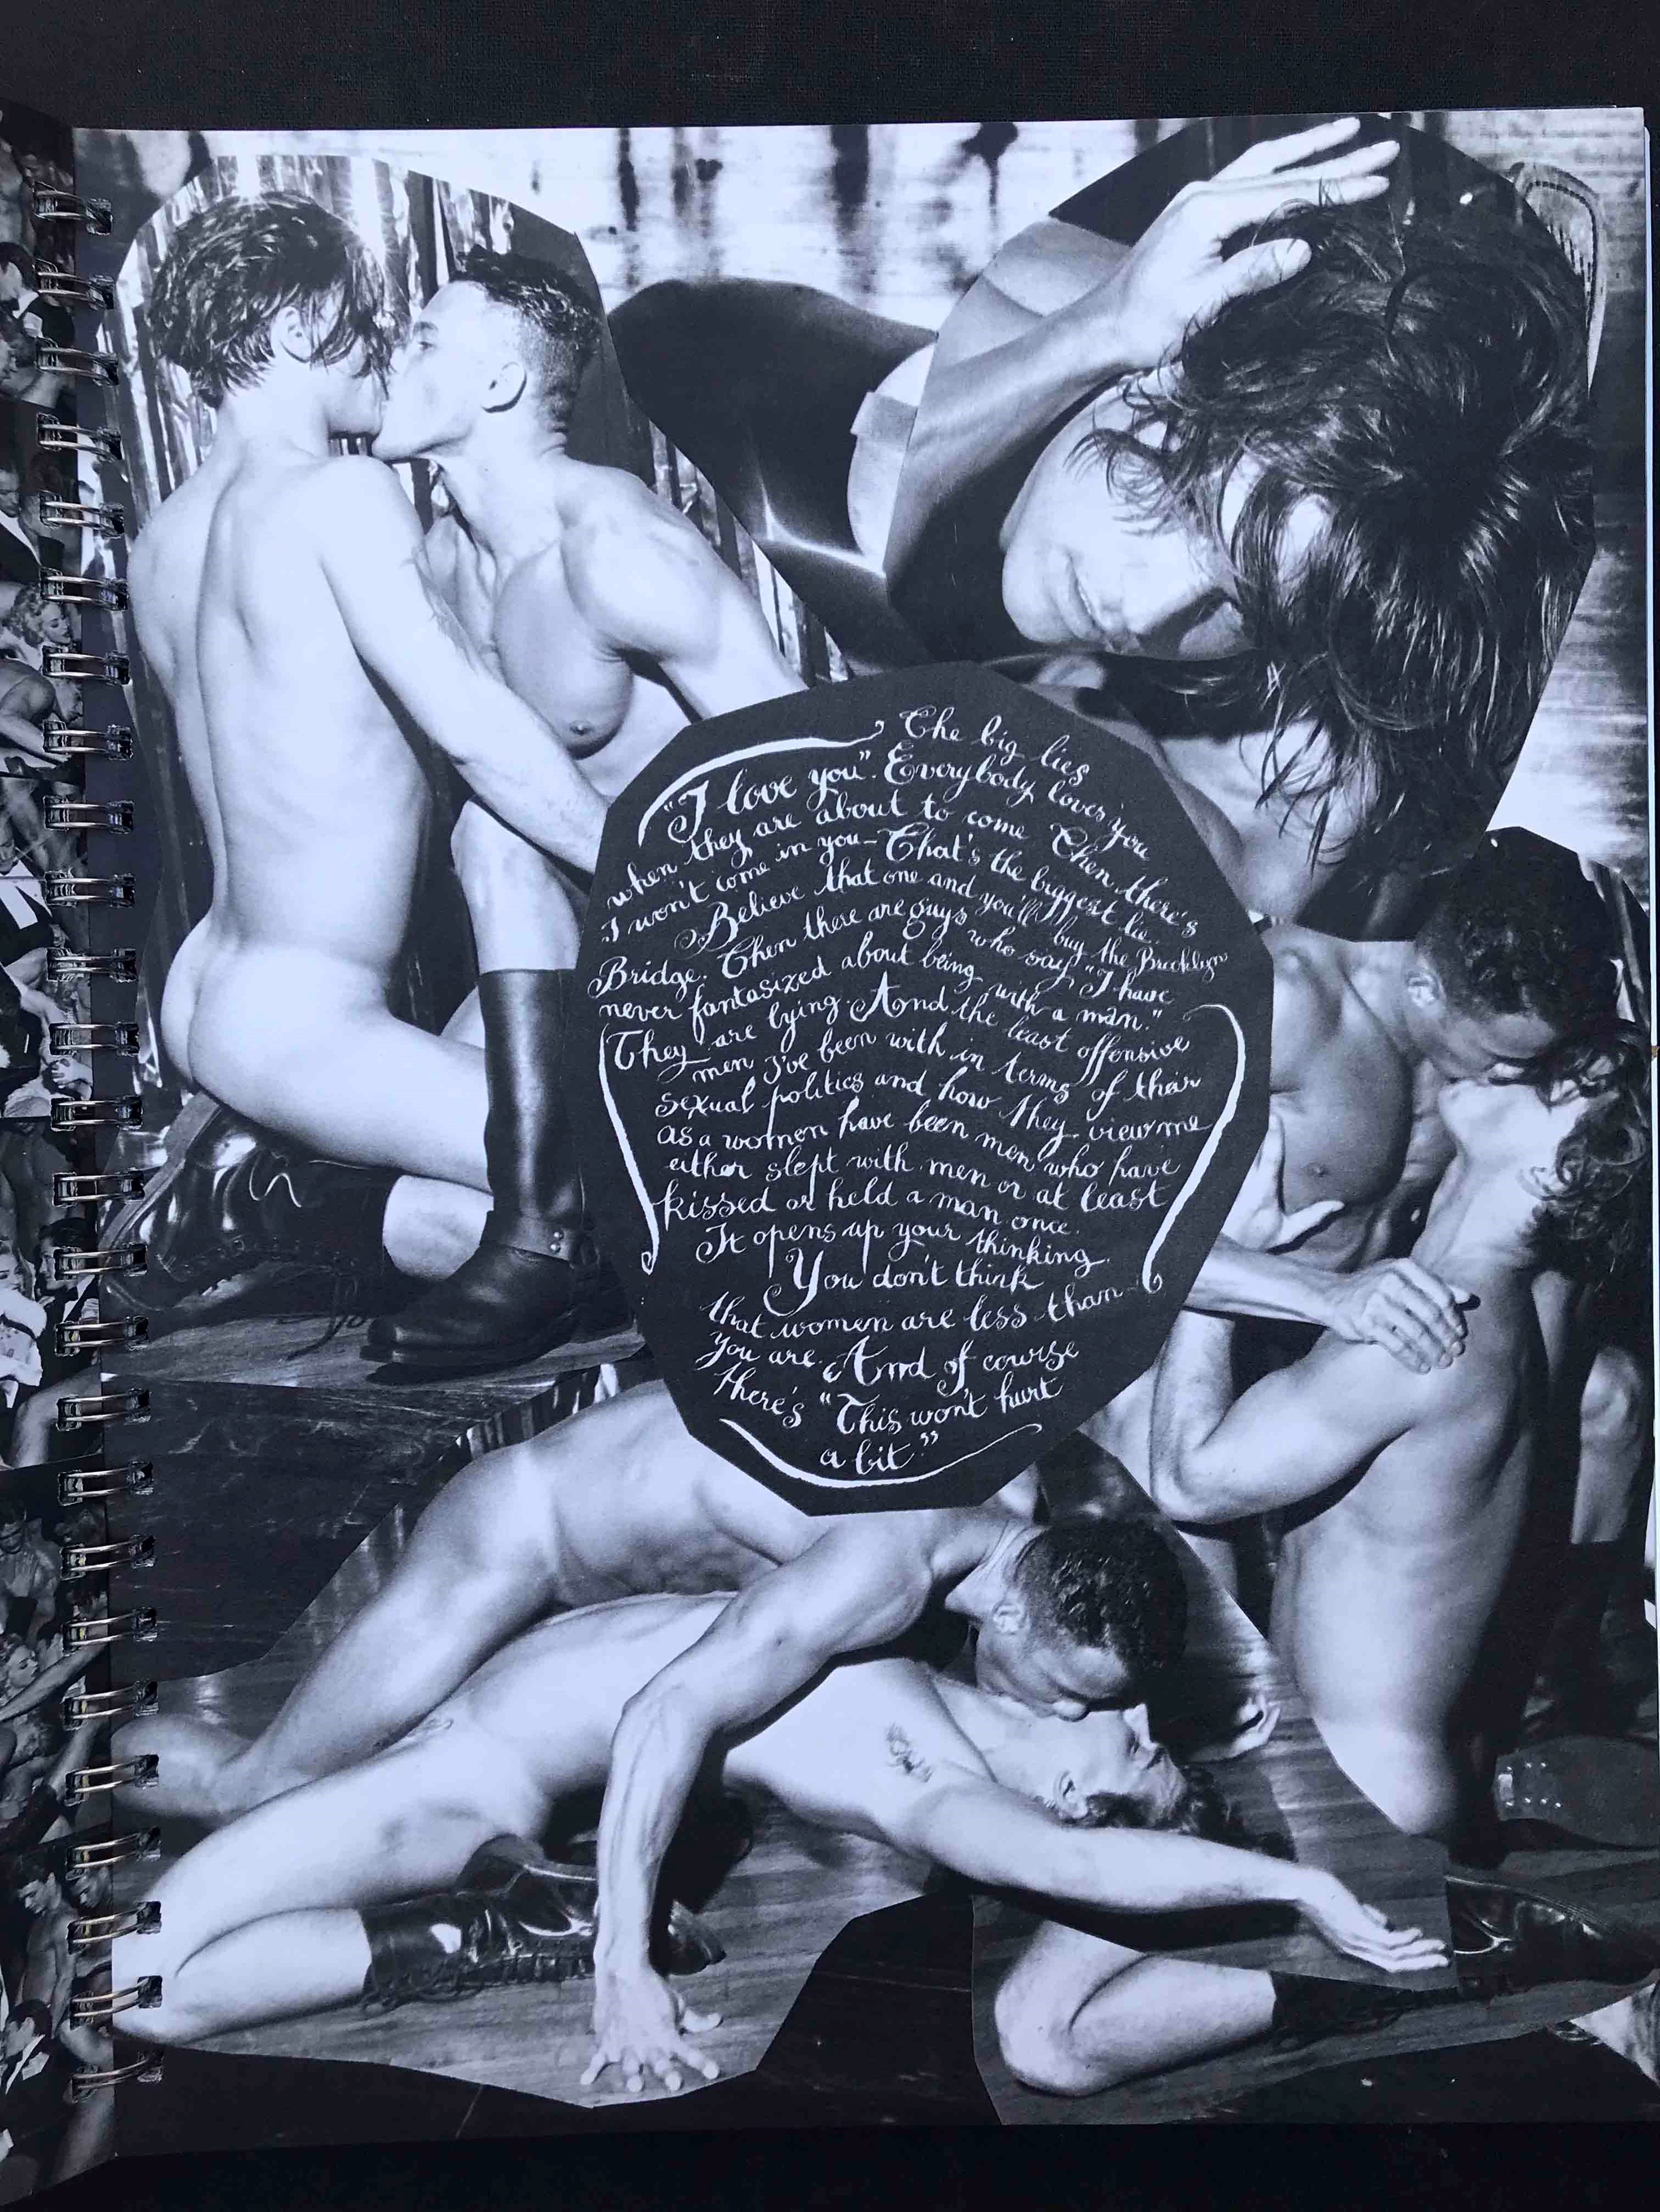 The big lies
"I love you". Everybody loves you
when they are about to come Then there's
I won't come in you – That's the biggest lie.
Believe that one and you'll buy the Brooklyn
Bridge. Then there are guys who say "I have
never fantasized about being with a man."
They are lying. And the least offensive
men I've been with in terms of their
sexual politics and how they view me
as a women have been men who have
either slept with men or at least
kissed or held a man once.
It opens up your thinking.
You don't think
that women are less than
you are. And of course
there's "This won't hurt
a bit"